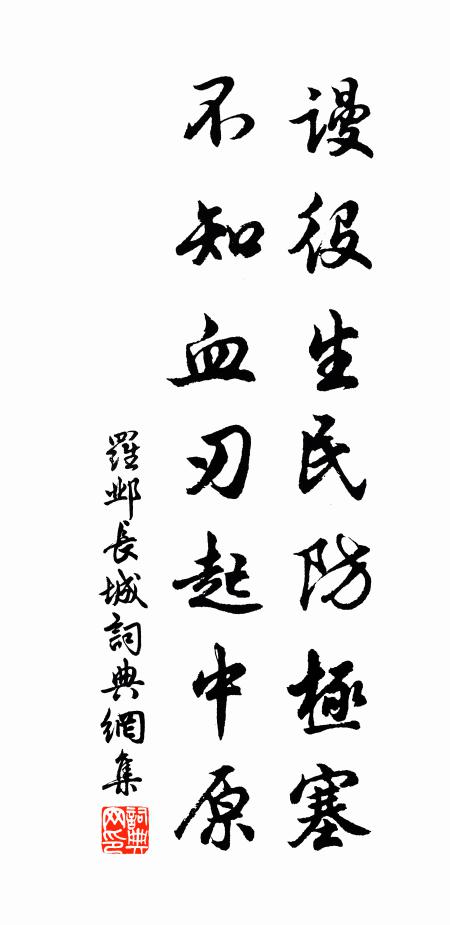 謾役生民防極塞
不知血刃起中原
羅邺長城詞典網集
詞典
网印